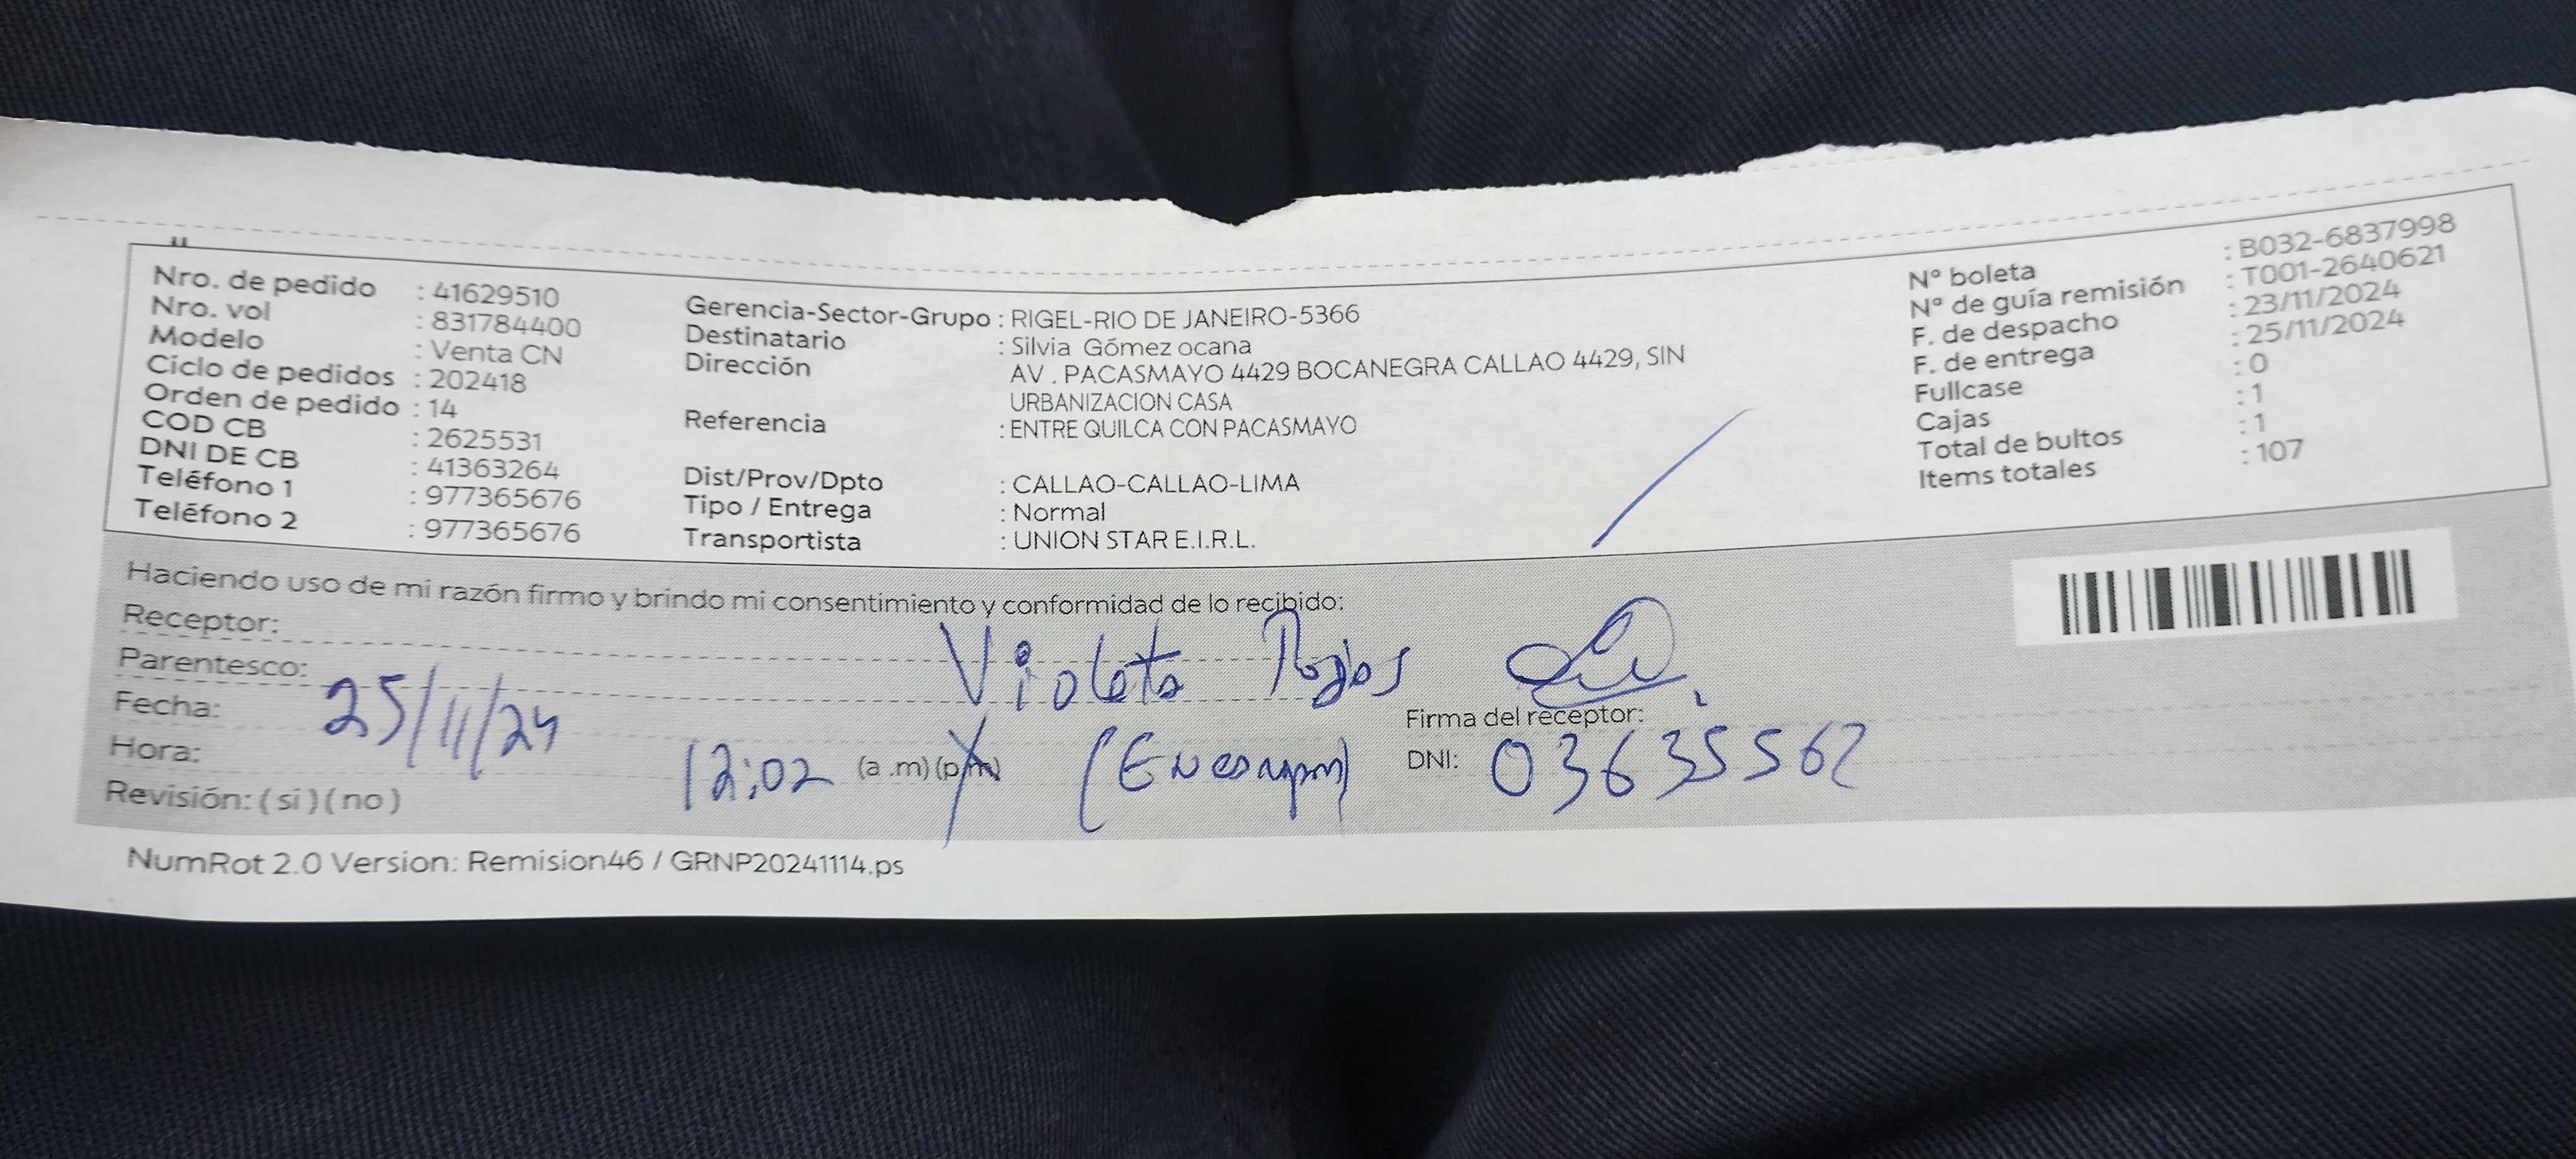 Nro. de pedido : 41629510
Nro. vol : 831784400
Modelo : Venta CN
Ciclo de pedidos : 202418
Orden de pedido : 14
COD CB : 2625531
DNI DE CB : 41363264
Teléfono 1 : 977365676
Teléfono 2 : 977365676
Gerencia-Sector-Grupo : RIGEL-RIO DE JANEIRO-5366
Destinatario : Silvia Gómez ocana
Dirección AV . PACASMAYO 4429 BOCANEGRA CALLAO 4429, SIN
URBANIZACION CASA
Referencia : ENTRE QUILCA CON PACASMAYO
Dist/Prov/Dpto : CALLAO-CALLAO-LIMA
Tipo / Entrega : Normal
Transportista : UNION STAR E.I.R.L.
N° boleta : B032-6837998
N° de guía remisión : T001-2640621
F. de despacho : 23/11/2024
F. de entrega : 25/11/2024
Fullcase : 0
Cajas : 1
Total de bultos : 1
Items totales : 107
Haciendo uso de mi razón firmo y brindo mi consentimiento y conformidad de lo recibido:
Receptor: Violeta Rojas
Parentesco:
Fecha: 25/11/24
Firma del receptor:
Hora: 12:02 (a .m)(p.m)
DNI: 03635562
Revisión: (si)(no)
NumRot 2.0 Version: Remision46 / GRNP20241114.ps